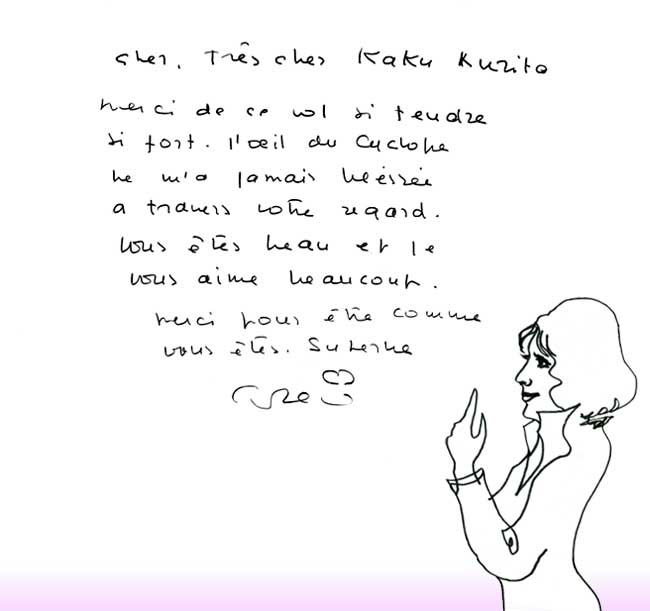 cher, Très cher Kaku Kurita
merci de ce vol si tendre
si fort. l'œil du Cyclope
ne m'a jamais blessée
a travers votre regard.
vous êtes beau et je
vous aime beaucoup.
merci pour être comme
vous êtes. Superbe